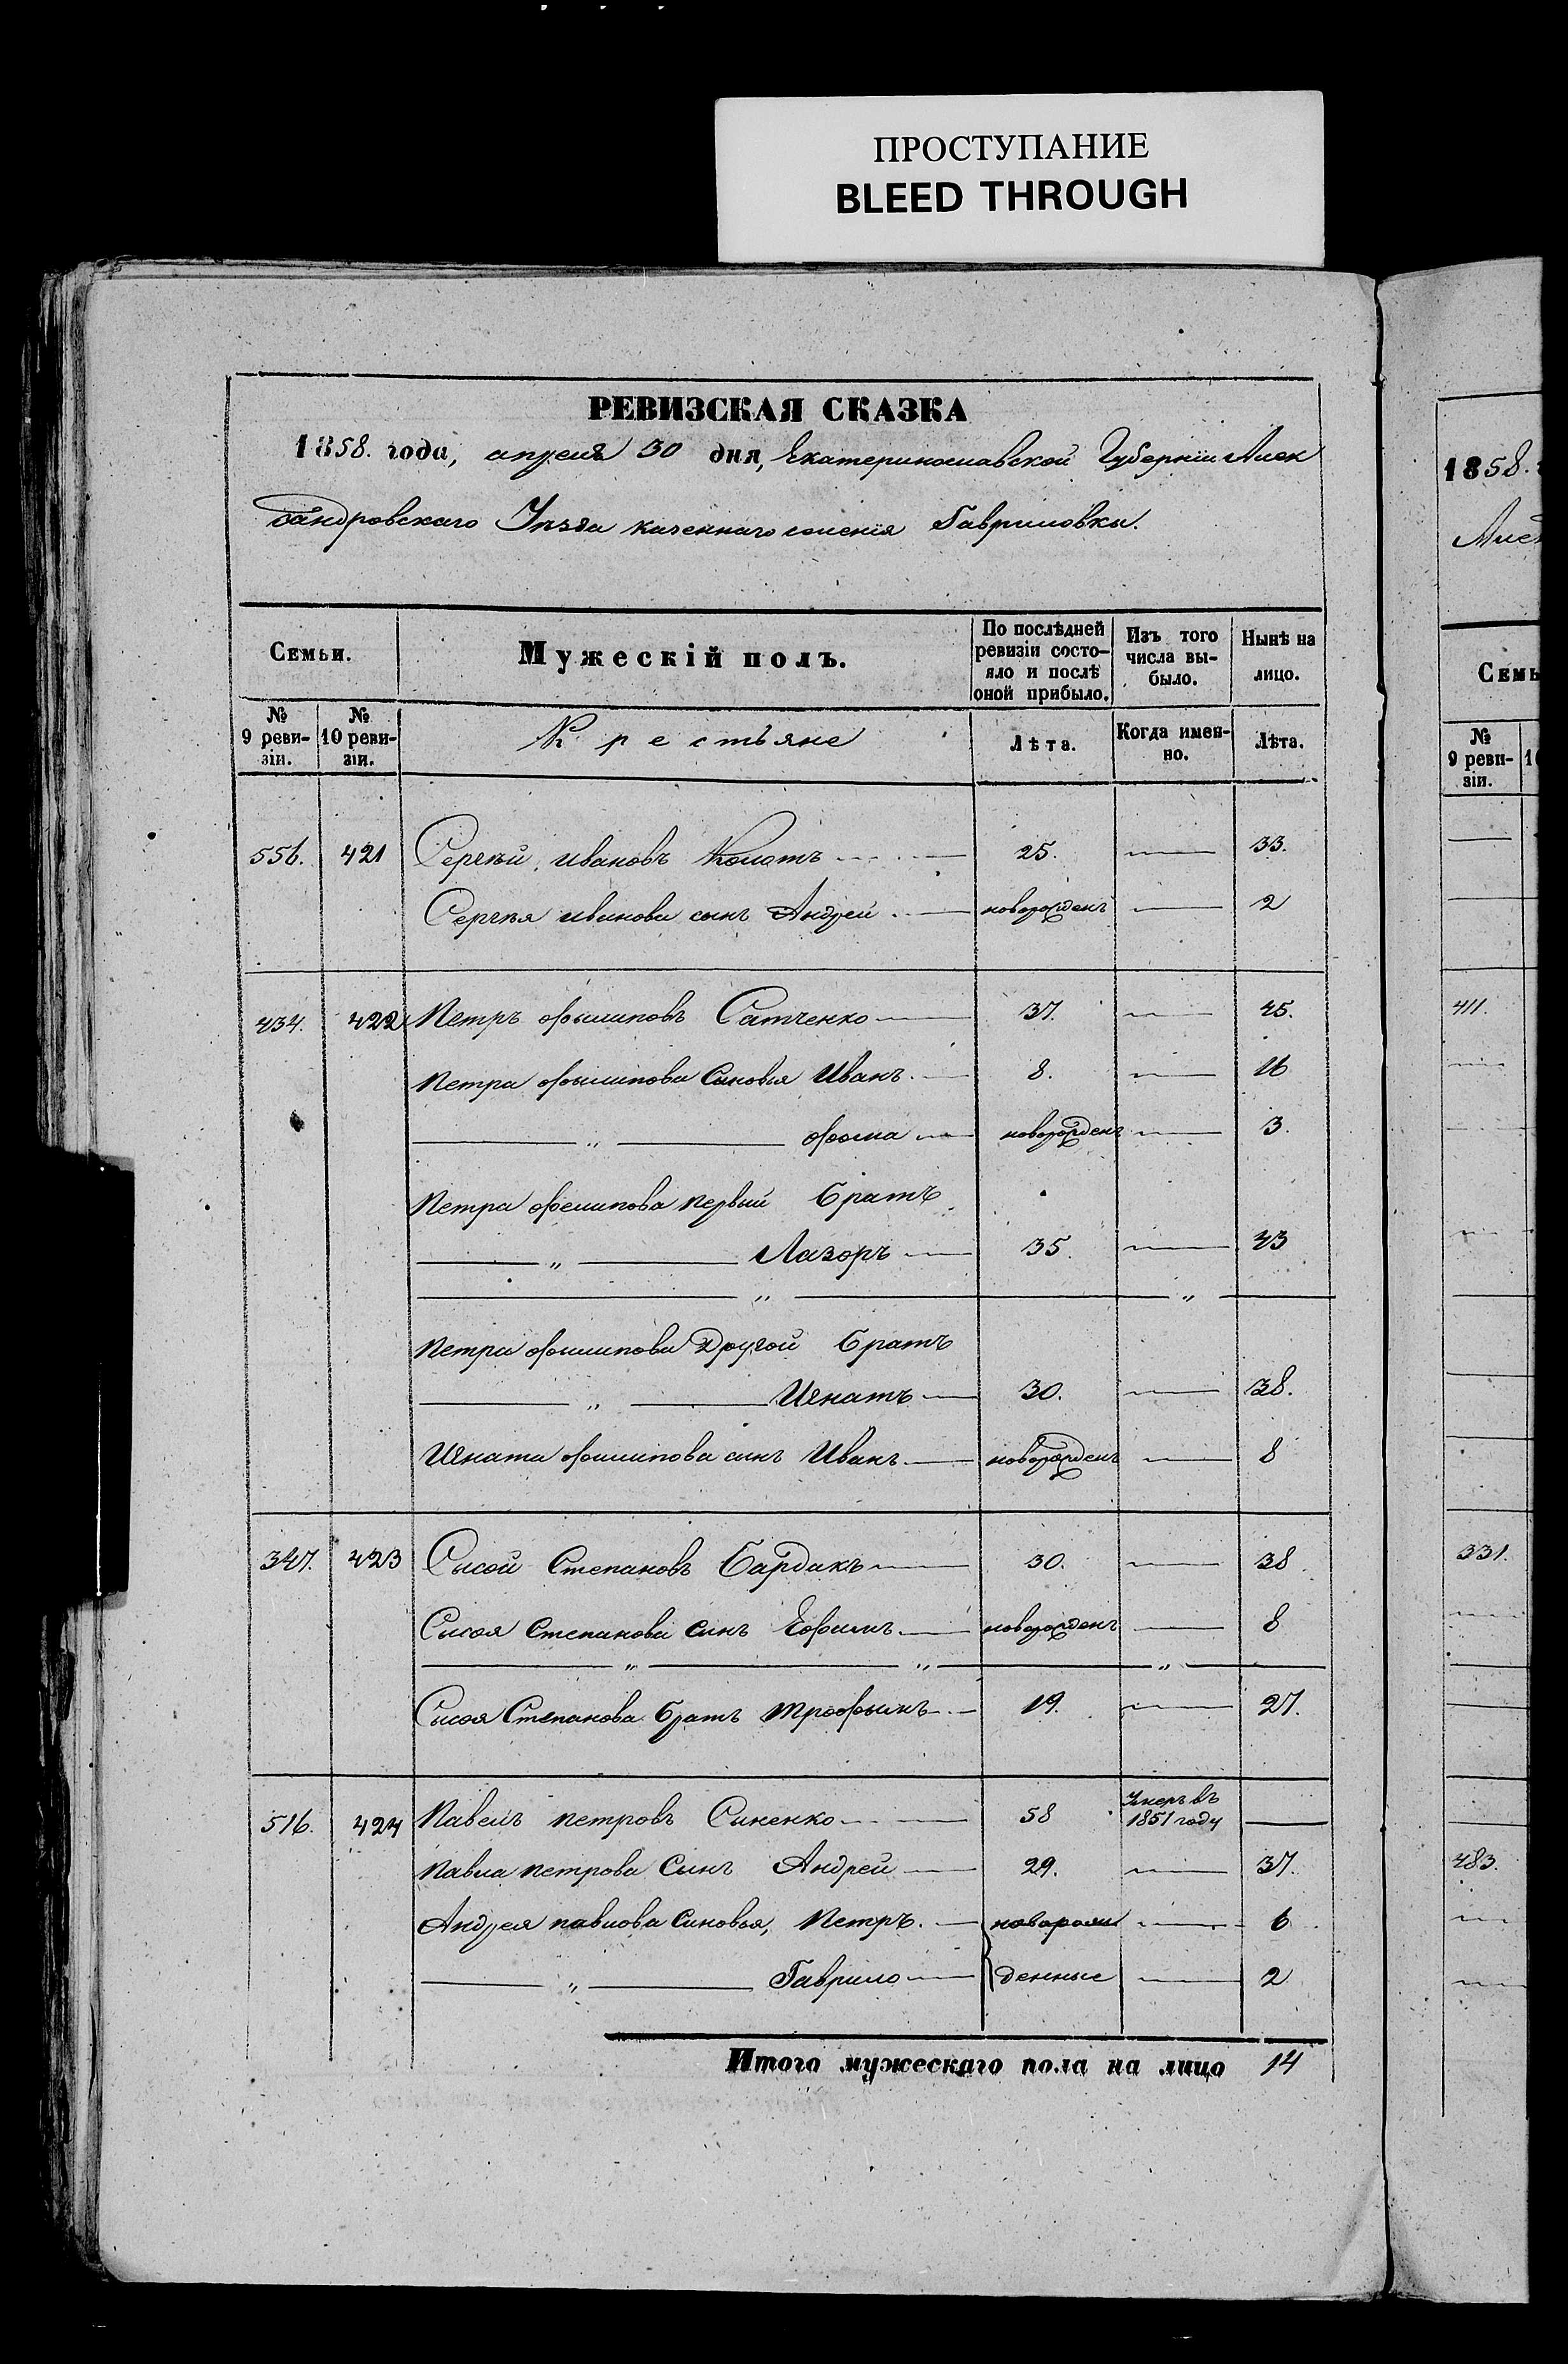 ПРОСТУПАНИЕ
BLEED THROUGH
РЕВИЗСКАЯ СКАЗКА
1858. года, апреля 30 дня, Екатеринославской Губерніи Алек
сандровскаго Уѣзда казеннаго селенія Гавриловки.
Семьи.
Мужескій полъ.
По послѣдней ревизіи состо-яло и послѣ оной прибыло.
Изъ того числа вы-было.
Нынѣ на лицо.
№ 9 реви-зіи.
№ 10 реви-зіи.
Крестьяне
Лѣта.
Когда имен-но.
Лѣта.
556. 421 Сергѣй Ивановъ 25. 33.
Сергѣя Иванова сынъ Андрей новорожденъ 2
434. 422 Петръ Филиповъ Сатченко 37. 45.
Петра Филипова Сыновья Иванъ 8. 16
„ Фома новорожденъ 3
Петра Филипова первый братъ
„ Лазоръ 35. 43
„ „
Петра Филипова Другой братъ
„ Игнатъ 30. 38.
Игната Филипова сынъ Иванъ новорожденъ 8
347. 423 Сысой Степановъ Бардакъ 30. 38
Сысоя Степанова сынъ Ефимъ новорожденъ 8
„ „ „
Сысоя Степанова братъ Трофымъ 19. 27.
516. 424 Павелъ Петровъ Синенко 58 Умеръ въ 1851 году
Павла Петрова Сынъ Андрей 29. 37.
Андрея Павлова Сыновья, Петръ. новорож 6
„ Гаврило денные 2
Итого мужескаго пола на лицо 14
1858.
Алек
Семь
№ 9 реви-зіи.
411.
331.
483.